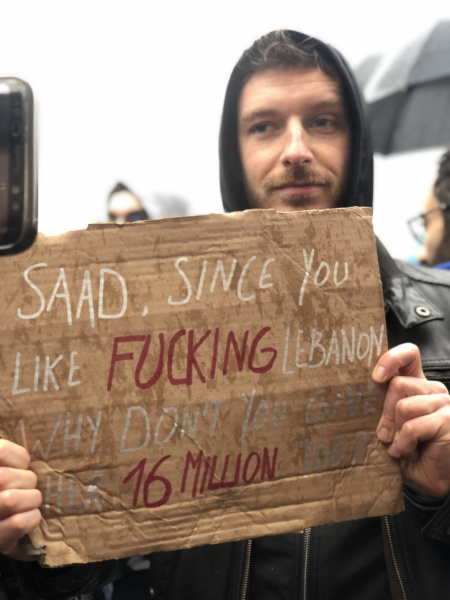 SAAD, SINCE YOU
LIKE FUCKING LEBANON
WHY DON'T YOU GIVE
HER 16 MILLION TOO?